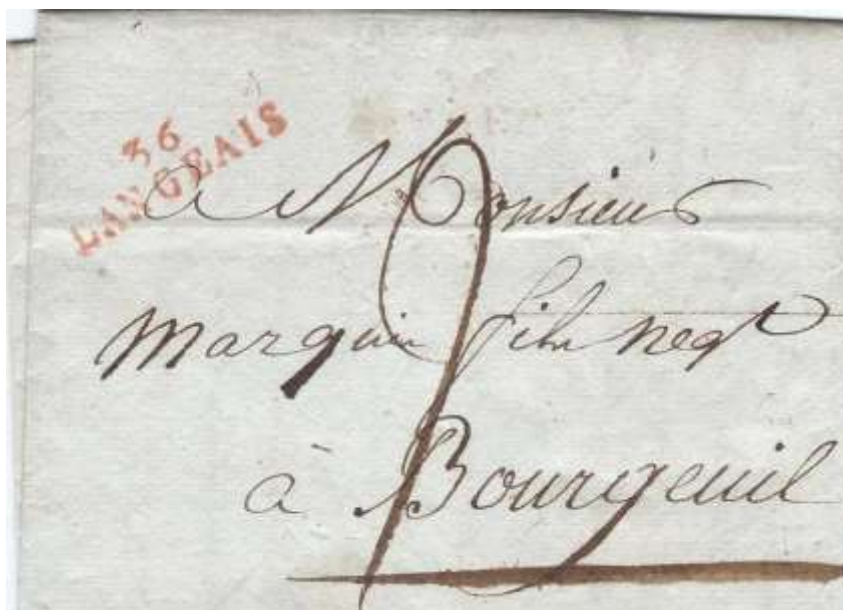 36
LANGEAIS
a Monsieur
Marquin fils negt
à Bourgeuil